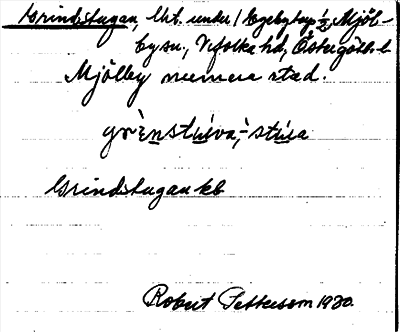 Grindstugan, lht. under 1 Egebytorp 1/2, Mjöl-
by sn., Vifolka hd, Östergötl. l
Mjölby numera stad.
grènstùva, -stúa
Grindstugan kb
Robert Pettersson 1920.